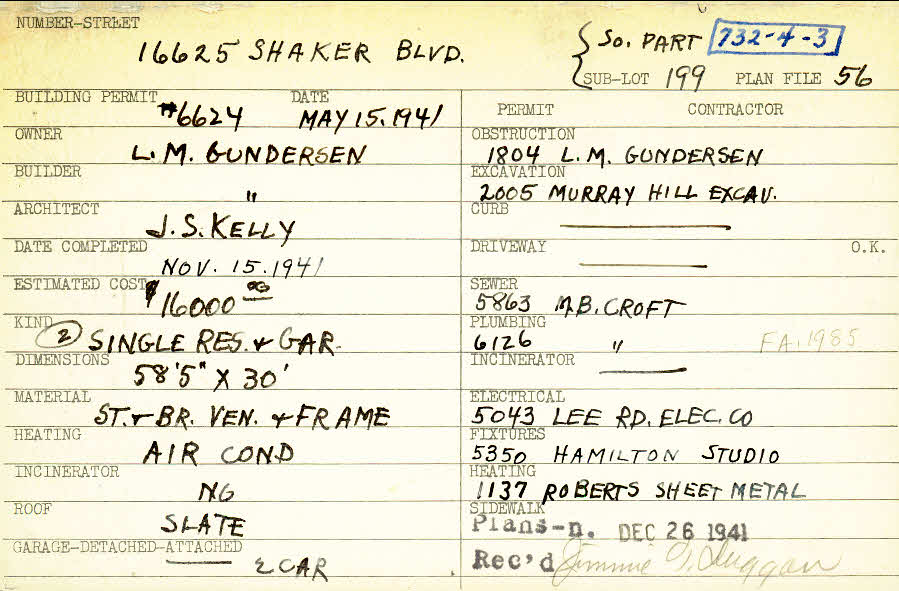 NUMBER-STREET
16625 SHAKER BLVD.
So. PART 732-4-3
SUB-LOT 199 PLAN FILE 56
BUILDING PERMIT DATE
#6624 MAY 15.1941
OWNER
L.M. GUNDERSEN
BUILDER
"
ARCHITECT
J.S. KELLY
DATE COMPLETED
NOV. 15.1941
ESTIMATED COST
$16000 00
KIND
2 SINGLE RES. & GAR.
DIMENSIONS
58'5" X 30'
MATERIAL
ST. & BR. VEN. & FRAME
HEATING
AIR COND
INCINERATOR
NG
ROOF
SLATE
GARAGE-DETACHED-ATTACHED
2 CAR
PERMIT CONTRACTOR
OBSTRUCTION
1804 L.M. GUNDERSEN
EXCAVATION
2005 MURRAY HILL EXCAV.
CURB
DRIVEWAY O.K.
SEWER
5863 M.B. CROFT
PLUMBING
6126 " FA. 1985
INCINERATOR
ELECTRICAL
5043 LEE RD. ELEC. CO
FIXTURES
5350 HAMILTON STUDIO
HEATING
1137 ROBERTS SHEET METAL
SIDEWALK
Plans-n. DEC 26 1941
Rec'd Jimmie G. Duggan